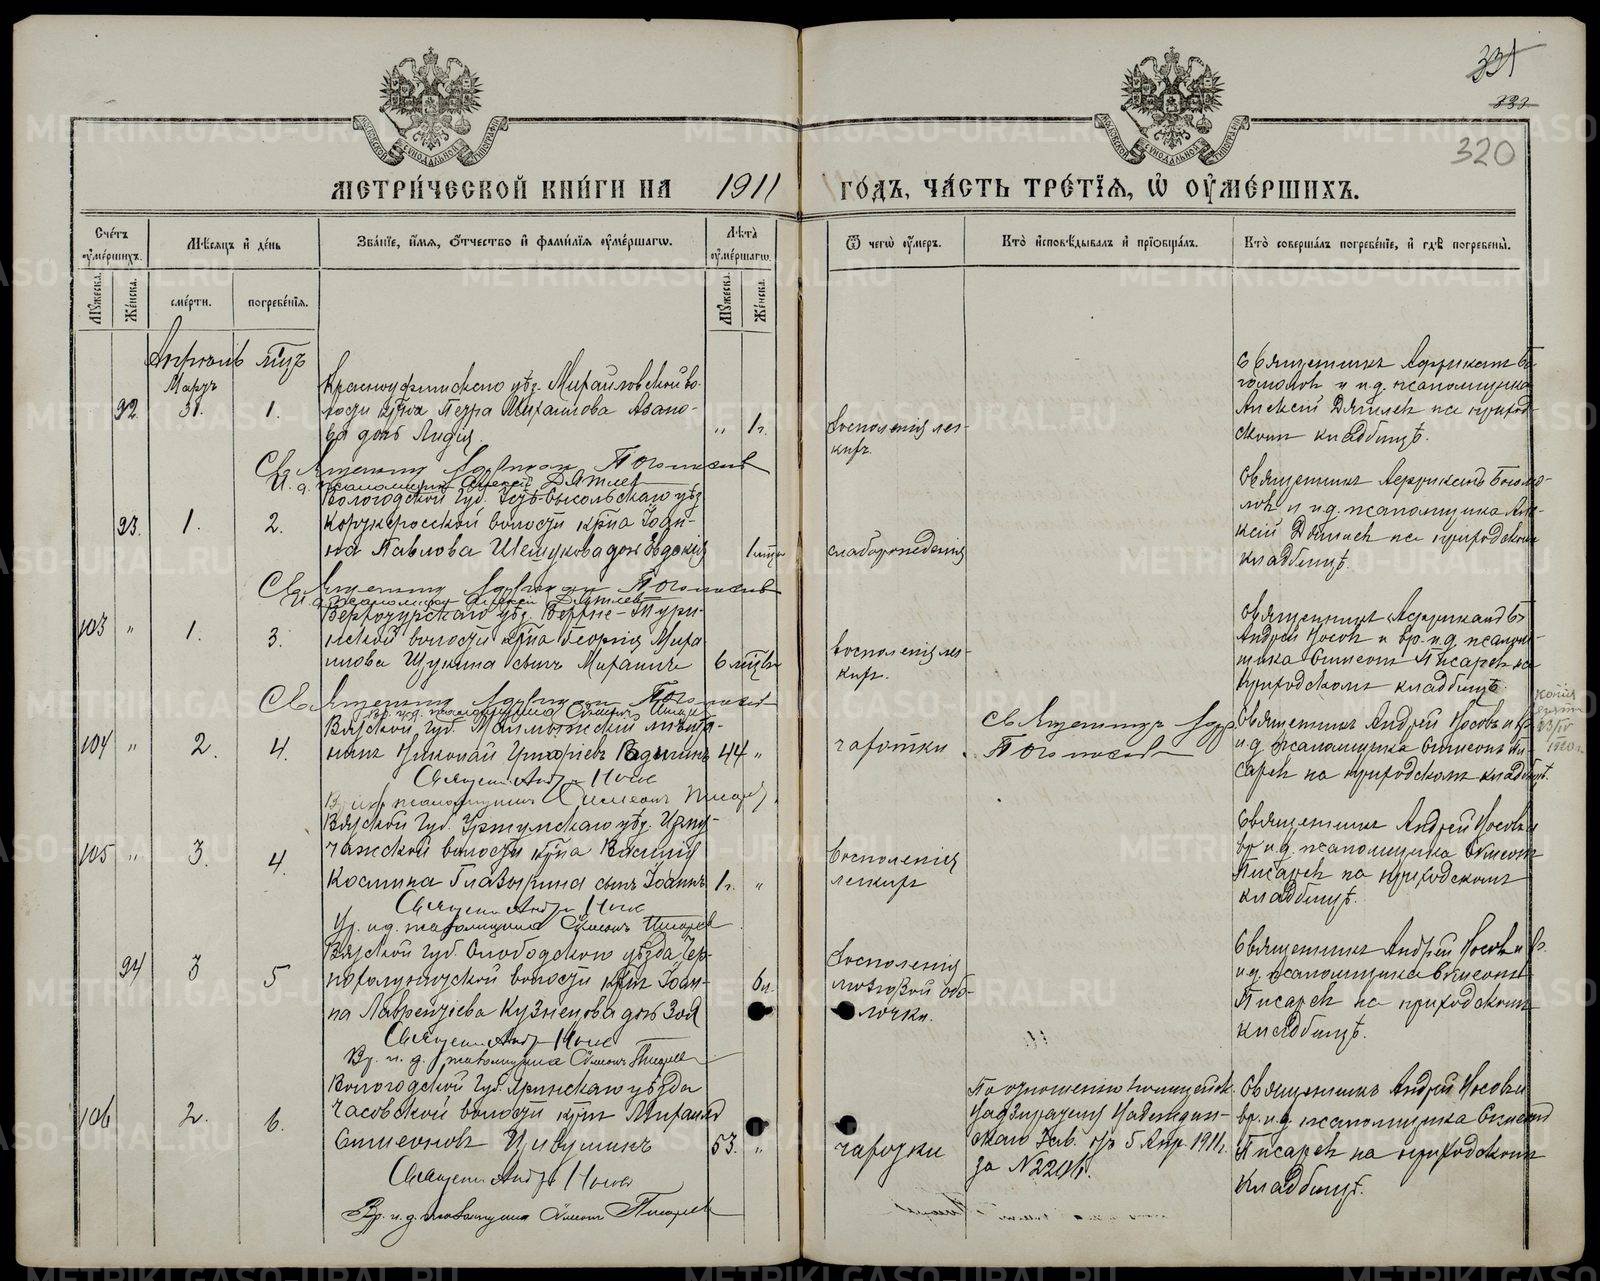 331
333
320
МЕТРИ́ЧЕСКОЙ КНИ́ГИ НА 1911 ГО́ДЪ, ЧА́СТЬ ТРЕ́ТЇѦ, Ѡ ОУ҆МЕ́РШИХЪ.
Сче́тъ оу҆ме́ршихъ.
Мѣ́сяцъ и҆ де́нь
Зва́нїе, и҆́мѧ, о҆́тчество и҆ фами́лїѧ оу҆ме́ршагѡ.
Лѣ́та оу҆ме́ршагѡ.
Ѿ чегѡ̀ оу҆́меръ.
Кто̀ и҆сповѣ́дывалъ и҆ прїѡбща́лъ.
Кто̀ соверша́лъ погребе́нїе, и҆ гдѣ̀ погребены̀.
Мꙋ́жеска.
Же́нска.
сме́рти.
погребе́нїѧ.
Мꙋ́жеска.
Же́нска.
Апрѣль м-цъ
Мартъ
92 31. 1.
Красноуфимскаго уѣз. Михайловской во-
лости кр-на Петра Михаилова Азано-
ва дочь Лидія.
„ 1 г.
Воспаленія лег-
кихъ.
Священникъ Африканъ Бо-
гомоловъ и и.д. псаломщика
Алексій Дягилевъ на приход-
скомъ кладбищѣ.
Священникъ
И. д. псаломщика Алексій Дягилев
93. 1. 2.
Вологодской губ. Усть-Сысольскаго уѣз
волости кр-на Іоан-
на Павлова дочь Евдокія
1 м-цъ
слаборожденія
Священникъ Африканъ Богомо-
ловъ и и.д. псаломщика Але-
ксій на приходскомъ
кладбищѣ.
Священникъ
И. д. псаломщика Алексій Дягилев
103 „ 1. 3.
Верхотурскаго уѣз. Верхне-Тури-
нской волости кр-на Георгія Миха
илова Щукина сынъ Михаилъ
6 м-цев
воспаленія лег-
кихъ.
Священники Африканъ Б.
Андрей Носовъ и вр. и д псалом-
щика Симеонъ Писаревъ на
приходскомъ кладбищѣ.
Священникъ
Вр. и.д. псаломщика Симеонъ Писарев
104 „ 2. 4.
Вятской губ. Малмыжскій мѣща-
нинъ Николай
44 „
чахотки
Священникъ
Священникъ Андрей Носовъ и вр.
и.д. псаломщика Симеонъ Пи-
саревъ на приходскомъ кладбищѣ.
копія
Священ. Андр. Носов
Вр. и д. псаломщика Симеонъ Писарев
105 „ 3. 4.
Вятской губ. Уржумскаго уѣз.
волости кр-на Василія
Космина сынъ Іоаннъ
1 г. „
Воспаленія
легкихъ
Священникъ Андрей Носовъ и
вр. и.д. псаломщика Симеонъ
Писаревъ на приходскомъ
кладбищѣ.
Священ. Андр. Носов
Вр. и.д. псаломщика Симеонъ Писарев
94 3 5
Вятской губ. Слободского уѣзда Чер-
нохолуницкой волости кр-на Іоан-
на Лаврентіева Кузнецова дочь Зоя
6 л.
Воспаленія
мозговой обо-
лочки.
Священникъ Андрей Носовъ и Вр.
и.д. псаломщика Симеонъ
Писаревъ на приходскомъ
кладбищѣ.
Священ. Андр. Носов
Вр. и. д. псаломщика Симеонъ Писарев
106 2. 6.
Вологодской губ. Яренскаго уѣзда
Часовской волости кр-нъ Михаилъ
Симеоновъ
53. „
чахотки
По отношенію полицейск.
Надзирателя Надеждин-
скаго Зав. отъ 5 Апр. 1911 г.
за №
Священникъ Андрей Носовъ и
вр. и.д. псаломщика Симеонъ
Писаревъ на приходскомъ
кладбищѣ.
Священ. Андр. Носов
Вр. и. д. псаломщика Симеонъ Писарев
METRIKI.GASO-URAL.RU